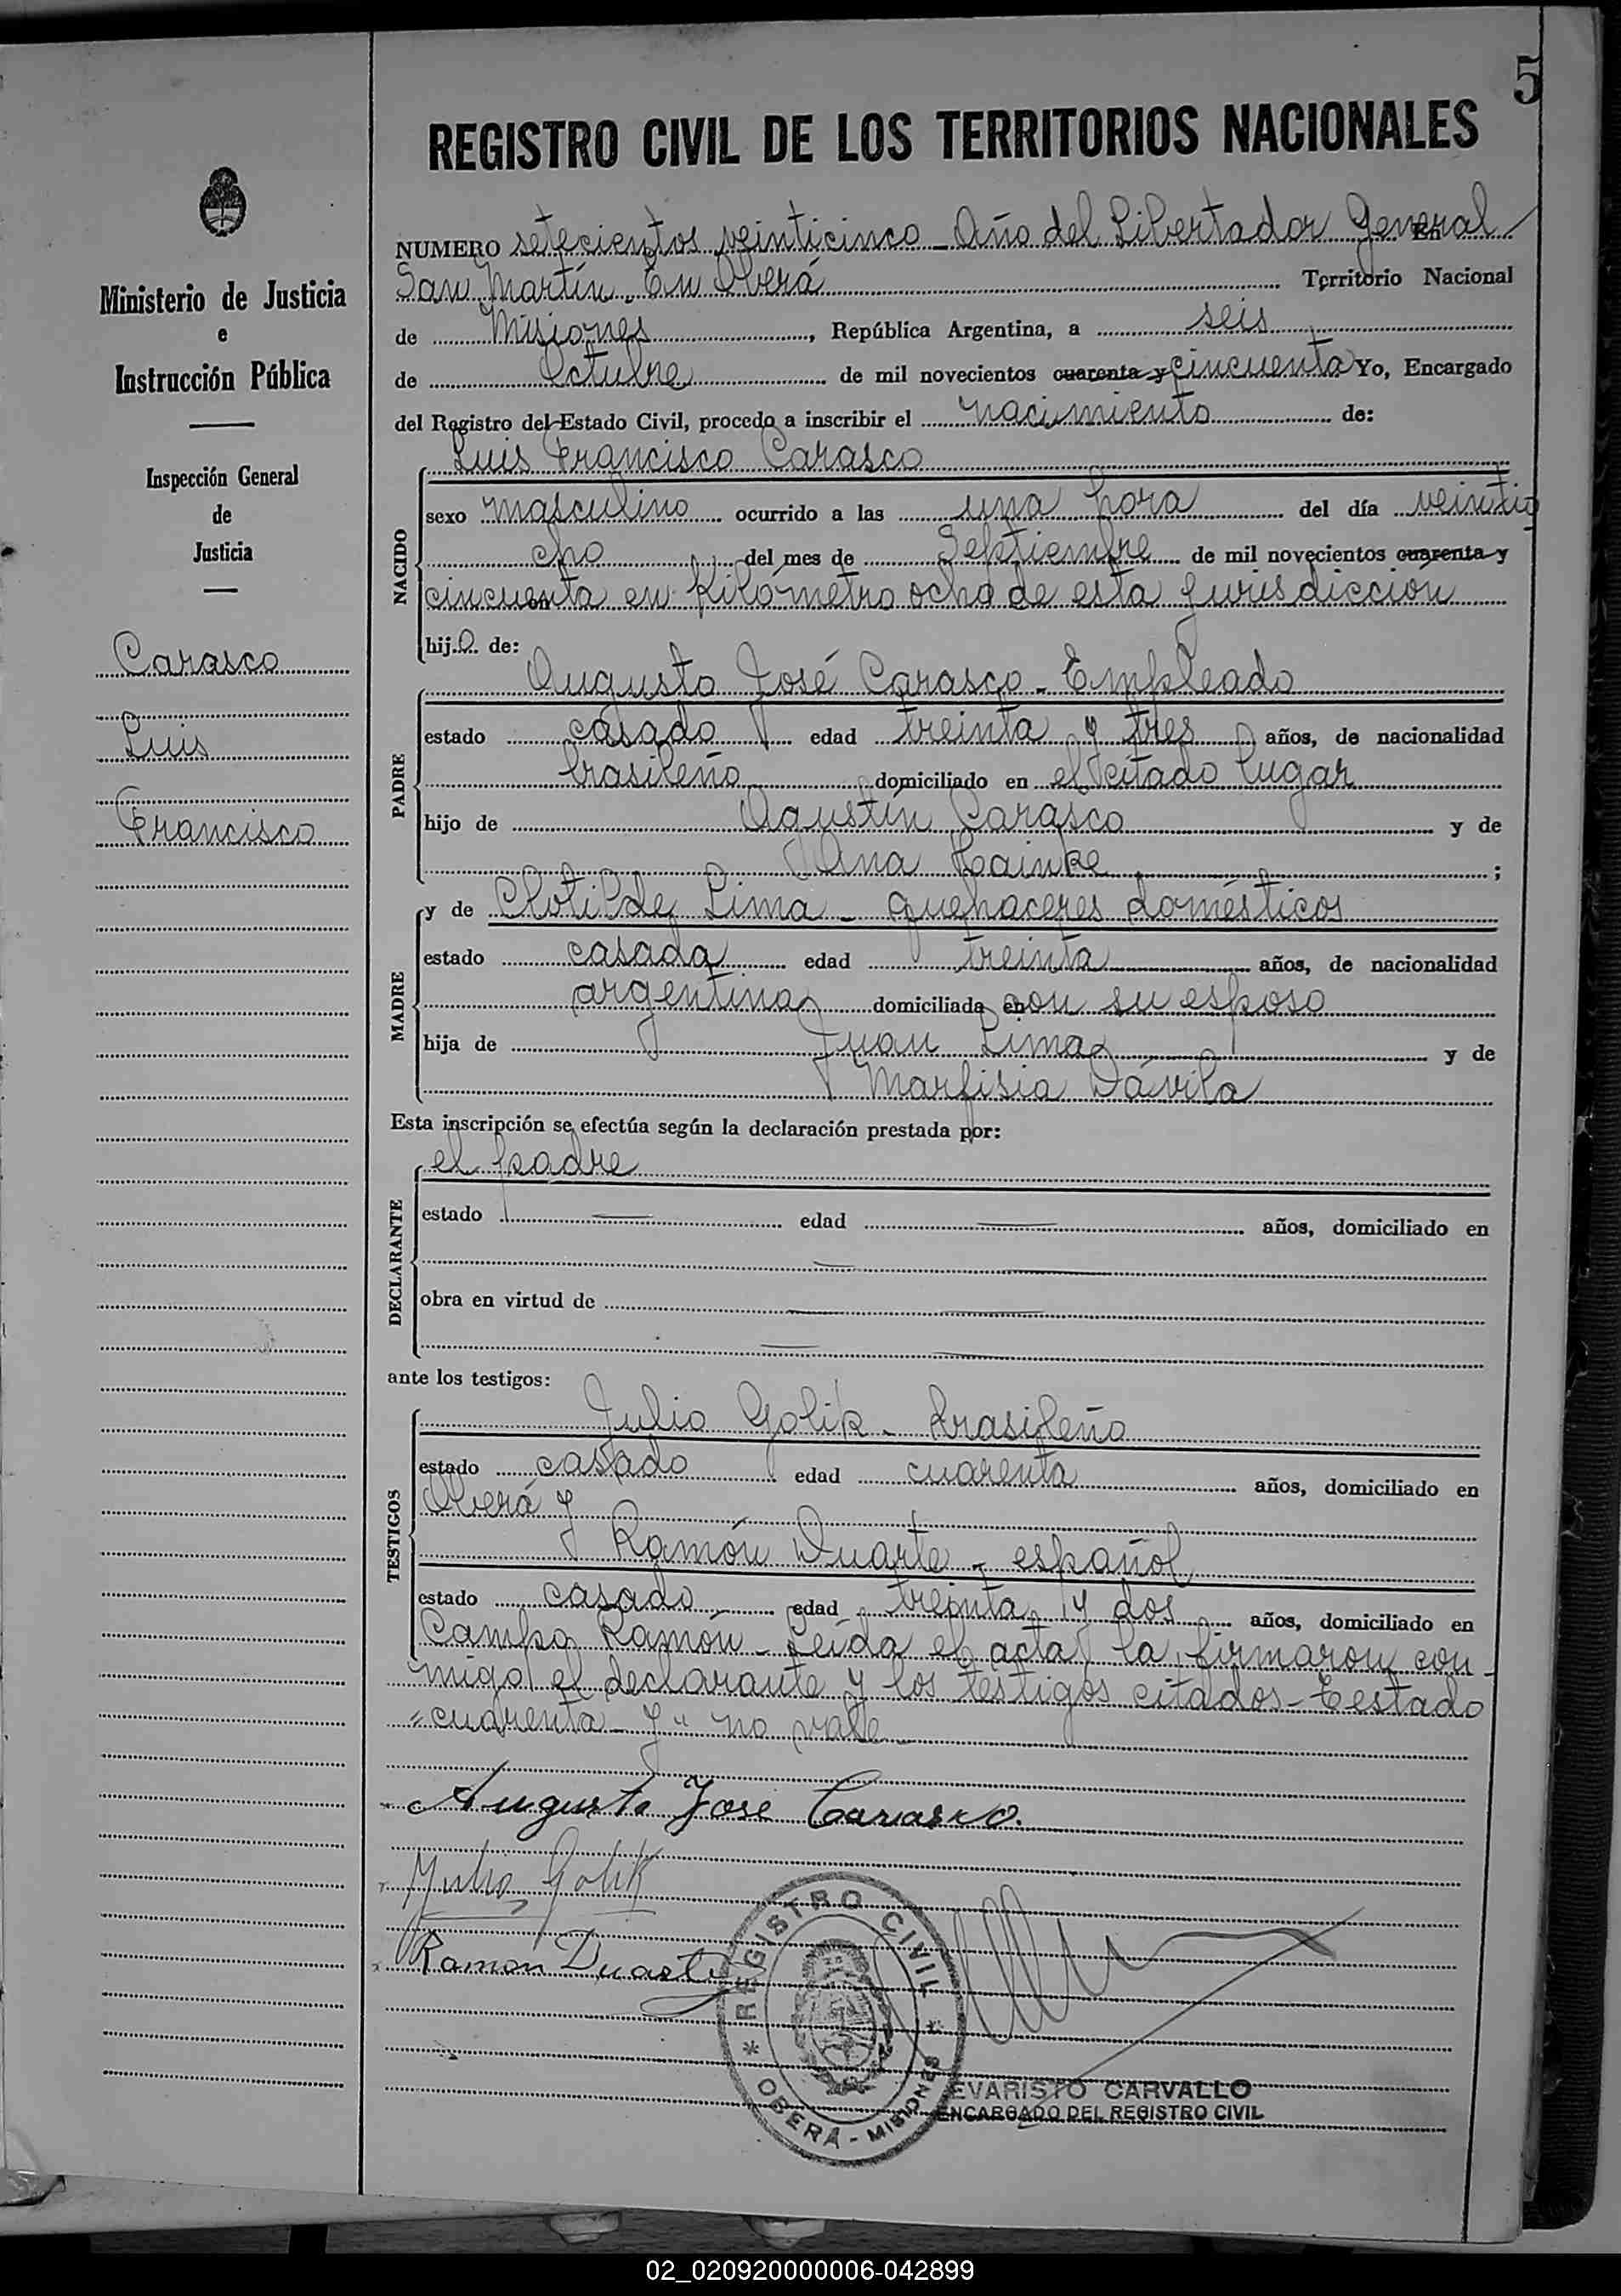 5
REGISTRO CIVIL DE LOS TERRITORIOS NACIONALES
Ministerio de Justicia
e
Instrucción Pública
Inspección General
de
Justicia
Carasco
Luis
Francisco
NUMERO setecientos veinticinco - Año del Libertador General
San Martín. En Oberá Territorio Nacional
de Misiones, República Argentina, a seis
de Octubre de mil novecientos cuarenta y cincuenta Yo, Encargado
del Registro del Estado Civil, procedo a inscribir el nacimiento de:
NACIDO
Luis Francisco Carasco
sexo masculino ocurrido a las una hora del día veintio
cho del mes de Septiembre de mil novecientos cuarenta y
cincuenta en Kilómetro ocho de esta jurisdicción
hijo de:
PADRE
Augusto José Carasco - Empleado
estado casado edad treinta y tres años, de nacionalidad
brasileño domiciliado en el citado lugar
hijo de Agustín Carasco y de
Ana Hainke;
MADRE
y de Clotilde Lima - quehaceres domésticos
estado casada edad treinta años, de nacionalidad
argentina domiciliada en con su esposo
hija de Juan Lima y de
Marfisia Dávila
Esta inscripción se efectúa según la declaración prestada por:
DECLARANTE
el padre
estado — edad — años, domiciliado en
obra en virtud de
ante los testigos:
TESTIGOS
Julio Golik - brasileño
estado casado edad cuarenta años, domiciliado en
Oberá y
Ramón Duarte - español
estado casado edad treinta y dos años, domiciliado en
Campo Ramón - Leída el acta la firmaron con-
migo el declarante y los testigos citados - Testado
"cuarenta - y" no vale -
Augusto José Carasco.
Julio Golik
Ramon Duarte
REGISTRO CIVIL
OBERÁ - MISIONES
EVARISTO CARVALLO
ENCARGADO DEL REGISTRO CIVIL
02_020920000006-042899